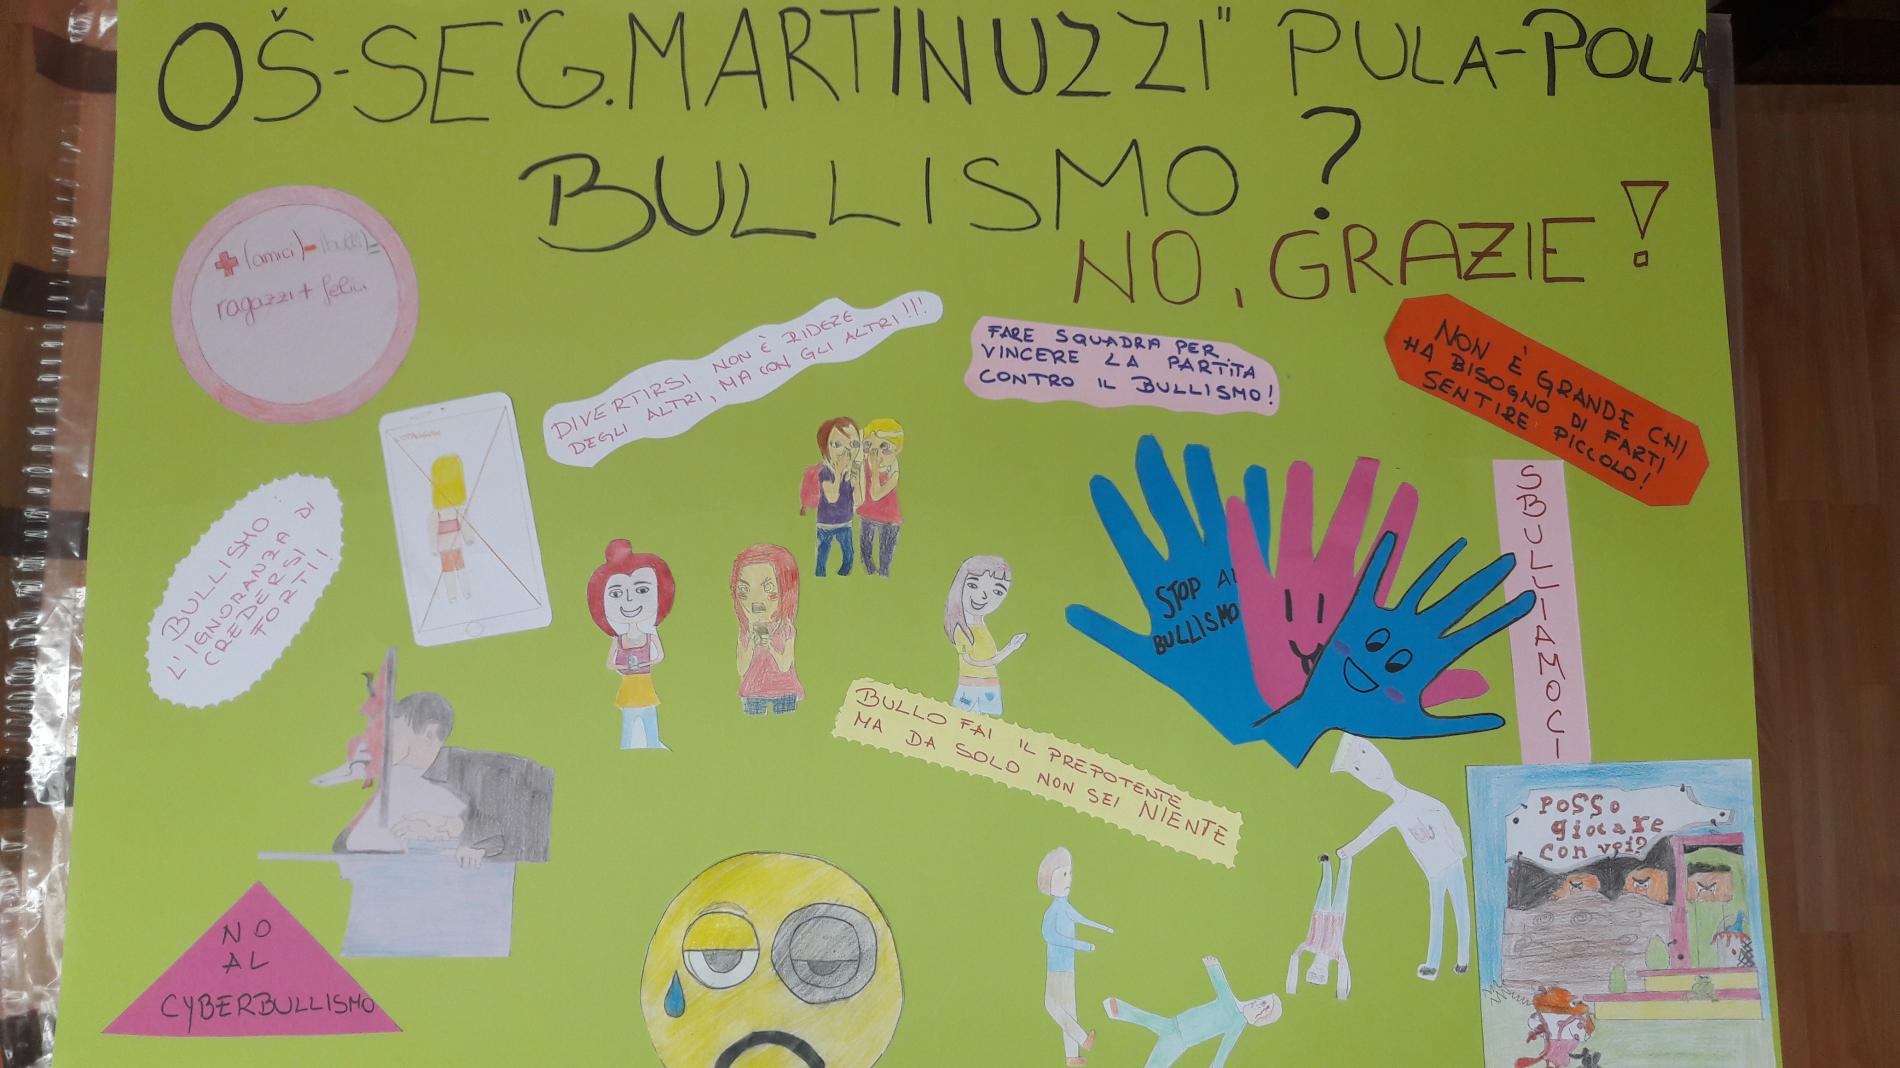 OŠ-SE "G. MARTINUZZI" PULA-POLA
BULLISMO?
NO, GRAZIE!
+ (amici) - (bulli) =
ragazzi + felici
DIVERTIRSI NON È RIDERE
DEGLI ALTRI, MA CON GLI ALTRI!!!
FARE SQUADRA PER
VINCERE LA PARTITA
CONTRO IL BULLISMO!
NON È GRANDE CHI
HA BISOGNO DI FARTI
SENTIRE PICCOLO!
BULLISMO:
L'IGNORANZA DI
CREDERSI
FORTI!
STOP AL
BULLISMO
SBULLIAMOCI
BULLO FAI IL PREPOTENTE
MA DA SOLO NON SEI NIENTE
POSSO
giocare
con voi?
NO
AL
CYBERBULLISMO